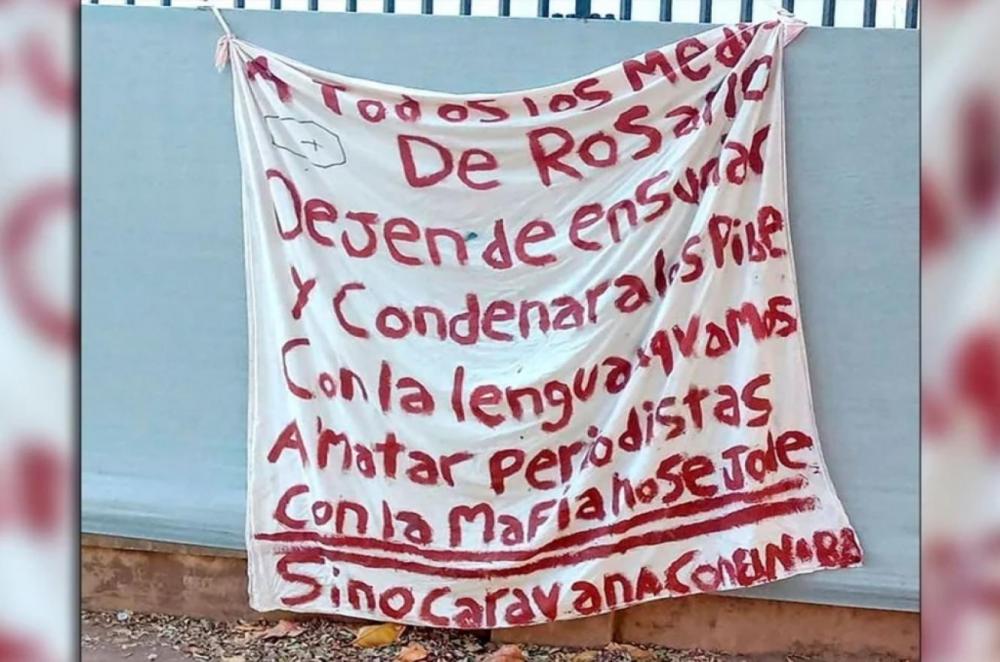 A Todos los Medi
De Rosario
Dejen de ensuciar
Y Condenar a los Pibe
Con la lengua xq vamos
A Matar Periodistas
Con la Mafia no se Jode
Sino Caravana